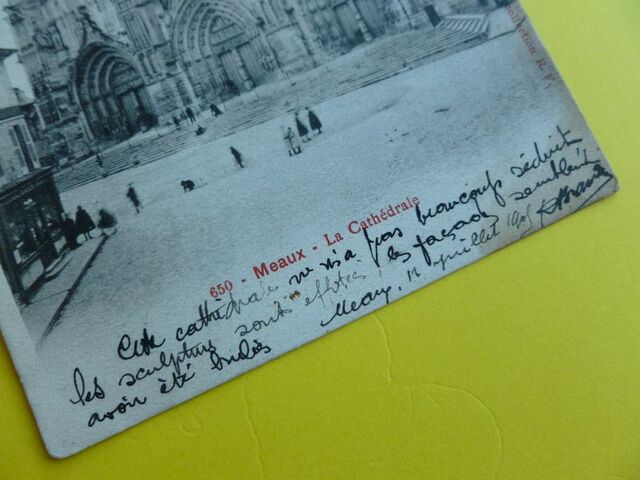 Collection R. F.
650 - Meaux - La Cathédrale
Cette cathédrale ne m'a pas beaucoup séduit
les sculptures sont effritées, les façades semblent
avoir été
Meaux, 12 juillet 1905